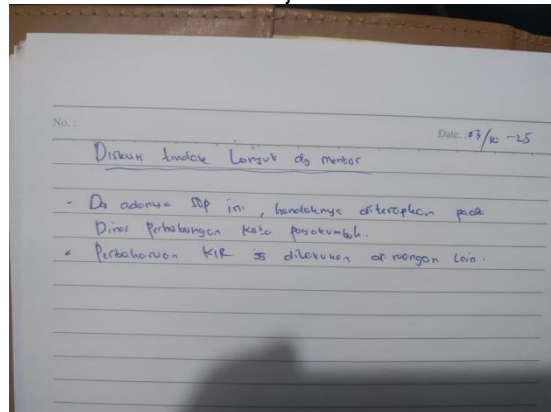 No. :
Date. : 03/10 -25
Diskusi tindak Lanjut dg mentor
- Dg adanya SOP ini, hendaknya diterapkan pada
Dinas Perhubungan Kota Payakumbuh.
- Perbaharuan KIR dilakukan di ruangan lain.